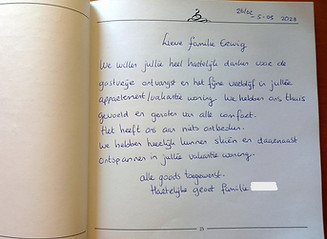 26/2e
-5-05 2023
Lieve familie Gewig
We willen jullie heel hartelijk danken voor de
gastvrije ontvangst en het fijne verblijf in jullie
appartement/vakantie woning. We hebben ons thuis
gevoeld en genoten van alle comfort.
Het heeft ons aan niets ontbroken.
We hebben heerlijk kunnen skiën en daarnaast
ontspannen in jullie vakantie woning.
alle goeds toegewenst.
Hartelijke groet familie